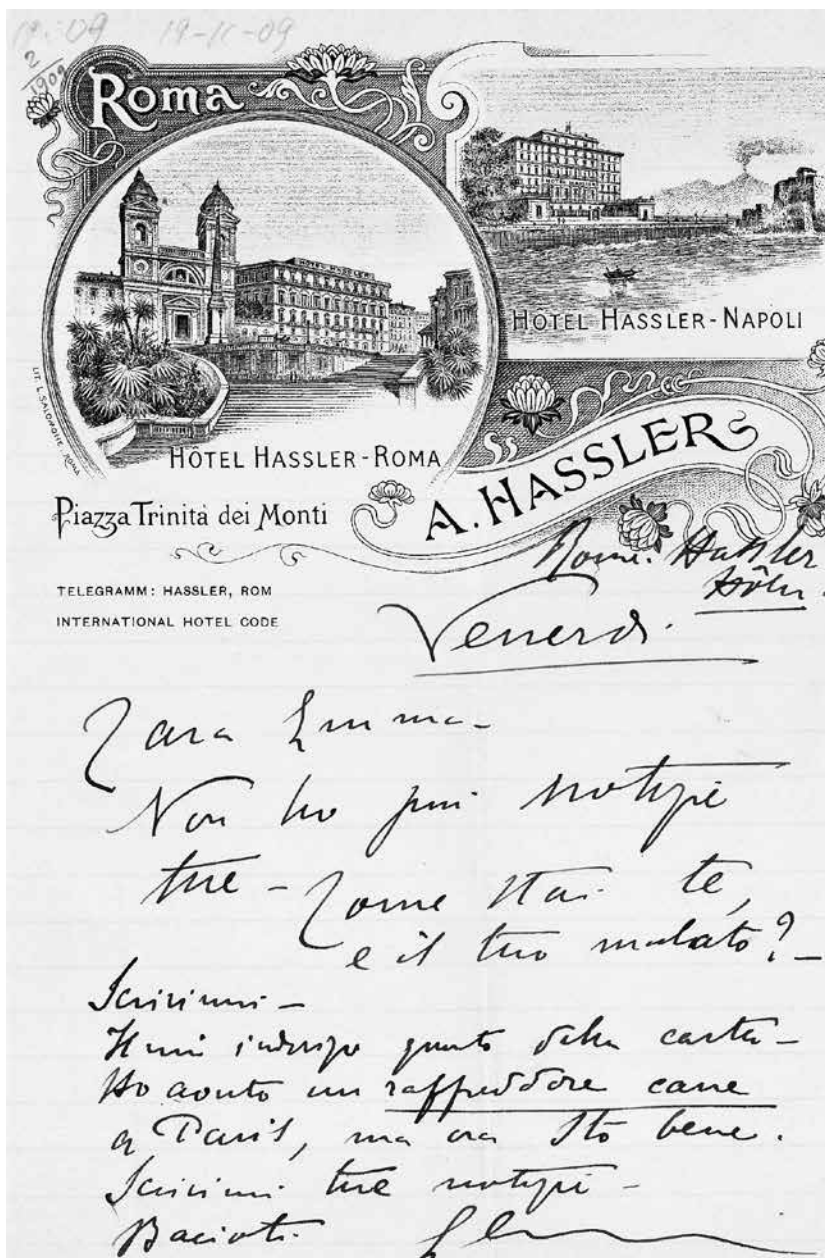 19-11-09
2
1909
Roma
HOTEL HASSLER
HOTEL HASSLER-NAPOLI
LIT. L. SALOMONE ROMA
HÔTEL HASSLER-ROMA
A. HASSLER
Piazza Trinità dei Monti
TELEGRAMM: HASSLER, ROM
INTERNATIONAL HOTEL CODE
Rome. Hassler
Hôtel.
Venerdi.
Cara Emma-
Non ho più notizie
tue - Come stai te,
e il tuo malato? -
Scrivimi -
Il mio indirizzo questo della carta -
Ho avuto un raffreddore cane
a Paris, ma ora sto bene.
Scrivimi tue notizie -
Bacioti.